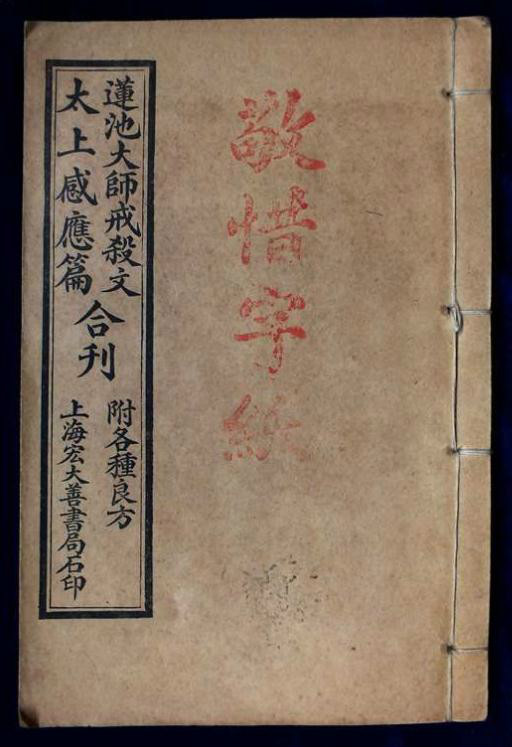 敬惜字紙
蓮池大師戒殺文
太上感應篇
合刊
附各種良方
上海宏大善書局石印